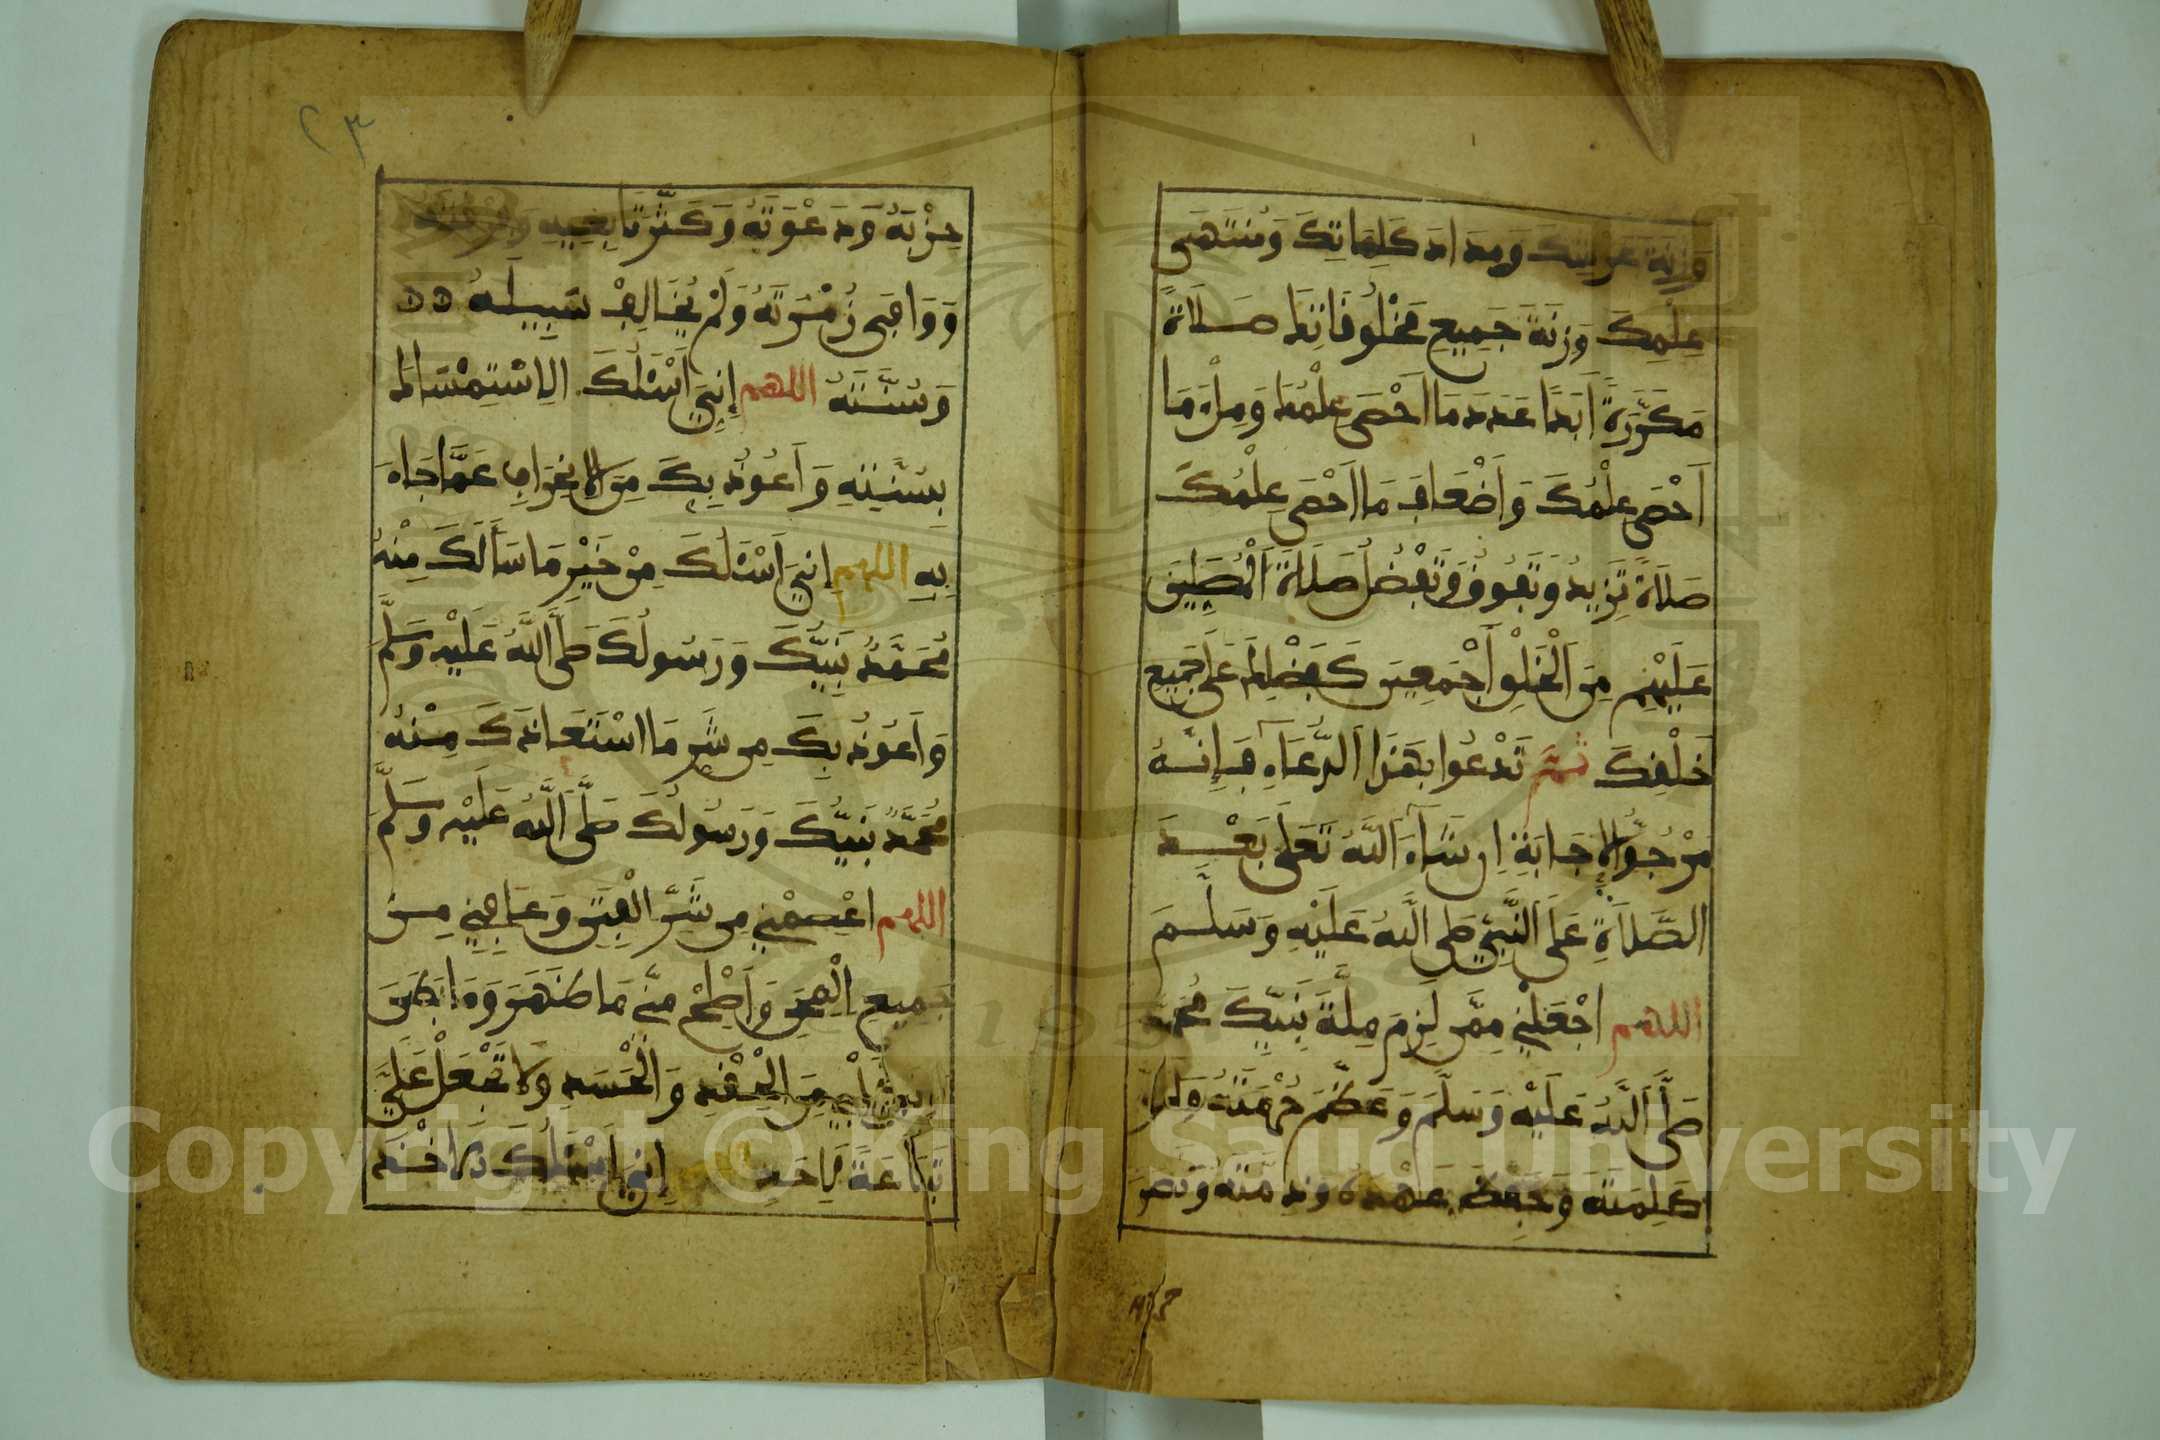 وَزِنَةَ عَرْشِكَ وَمِدَادَ كَلِمَاتِكَ وَمُنْتَهَى
عِلْمِكَ وَزِنَةَ جَمِيعِ مَخْلُوقَاتِكَ صَلَاةً
مُكَرَّرَةً اَبَدًا عَدَدَ مَا اَحْصَى عِلْمُكَ وَمِلْءَ مَا
اَحْصَى عِلْمُكَ وَاَضْعَافَ مَا اَحْصَى عِلْمُكَ
صَلَاةً تَزِيدُ وَتَفُوقُ وَتَفْضُلُ صَلَاةَ الْمُصَلِّينَ
عَلَيْهِمْ مِنَ الْخَلْقِ أَجْمَعِينَ كَفَضْلِكَ عَلَى جَمِيعِ
خَلْقِكَ ثم تَدْعُوا بِهَذَا الدُّعَاءِ فَإِنَّهُ
مَرْجُوُّ الإِجَابَةِ إِن شَاءَ اللَّهُ تَعَلَى بَعْدَ
الصَّلَاةِ عَلَى النَّبِيِّ صَلَّى اللَّهُ عَلَيْهِ وَسَلَّمَ
اللهم اجْعَلْنِي مِمَّن لَزِمَ مِلَّةَ نَبِيِّكَ مُحَمَّدٍ
صَلَّى اللَّهُ عَلَيْهِ وَسَلَّمَ وَعَظَّمَ حُرْمَتَهُ وَأَعَزَّ
كَلِمَتَهُ وَحَفِظَ عَهْدَهُ وَذِمَّتَهُ وَنَصَرَ
حزبه
٢٣
حِزْبَهُ وَدَعْوَتَهُ وَكَثَّرَ تَابِعِيهِ وَفِرْقَتَهُ
وَوَافَى زُمْرَتَهُ وَلَمْ يُخَالِفْ سَبِيلَهُ
وَسُنَّتَهُ اللهم إِنِّي اَسْئَلُكَ الِاسْتِمْسَاكَ
بِسُنَّتِهِ وَاَعُوذُ بِكَ مِنَ الِانْحِرَافِ عَمَّا جَاءَ
بِهِ اللهم إِنِّي اَسْئَلُكَ مِنْ خَيْرِ مَا سَأَلَكَ مِنْهُ
مُحَمَّدٌ نَبِيُّكَ وَرَسُولُكَ صَلَّى اللَّهُ عَلَيْهِ وَسَلَّمَ
وَاَعُوذُ بِكَ مِن شَرِّ مَا اسْتَعَاذَكَ مِنْهُ
مُحَمَّدٌ نَبِيُّكَ وَرَسُولُكَ صَلَّى اللَّهُ عَلَيْهِ وَسَلَّمَ
اللهم اعْصِمْنِي مِن شَرِّ الْفِتَنِ وَعَافِنِي مِن
جَمِيعِ الْمِحَنِ وَاَصْلِحْ مِنِّي مَا ظَهَرَ وَمَا بَطَنَ
وَنَقِّ قَلْبِي مِنَ الْحِقْدِ وَالْحَسَدِ وَلَا تَجْعَلْ عَلَيَّ
تِبَاعَةً لِأَحَدٍ اللهم إِنِّي اَسْئَلُكَ الاخْذَ
Copyright © King Saud University
1957